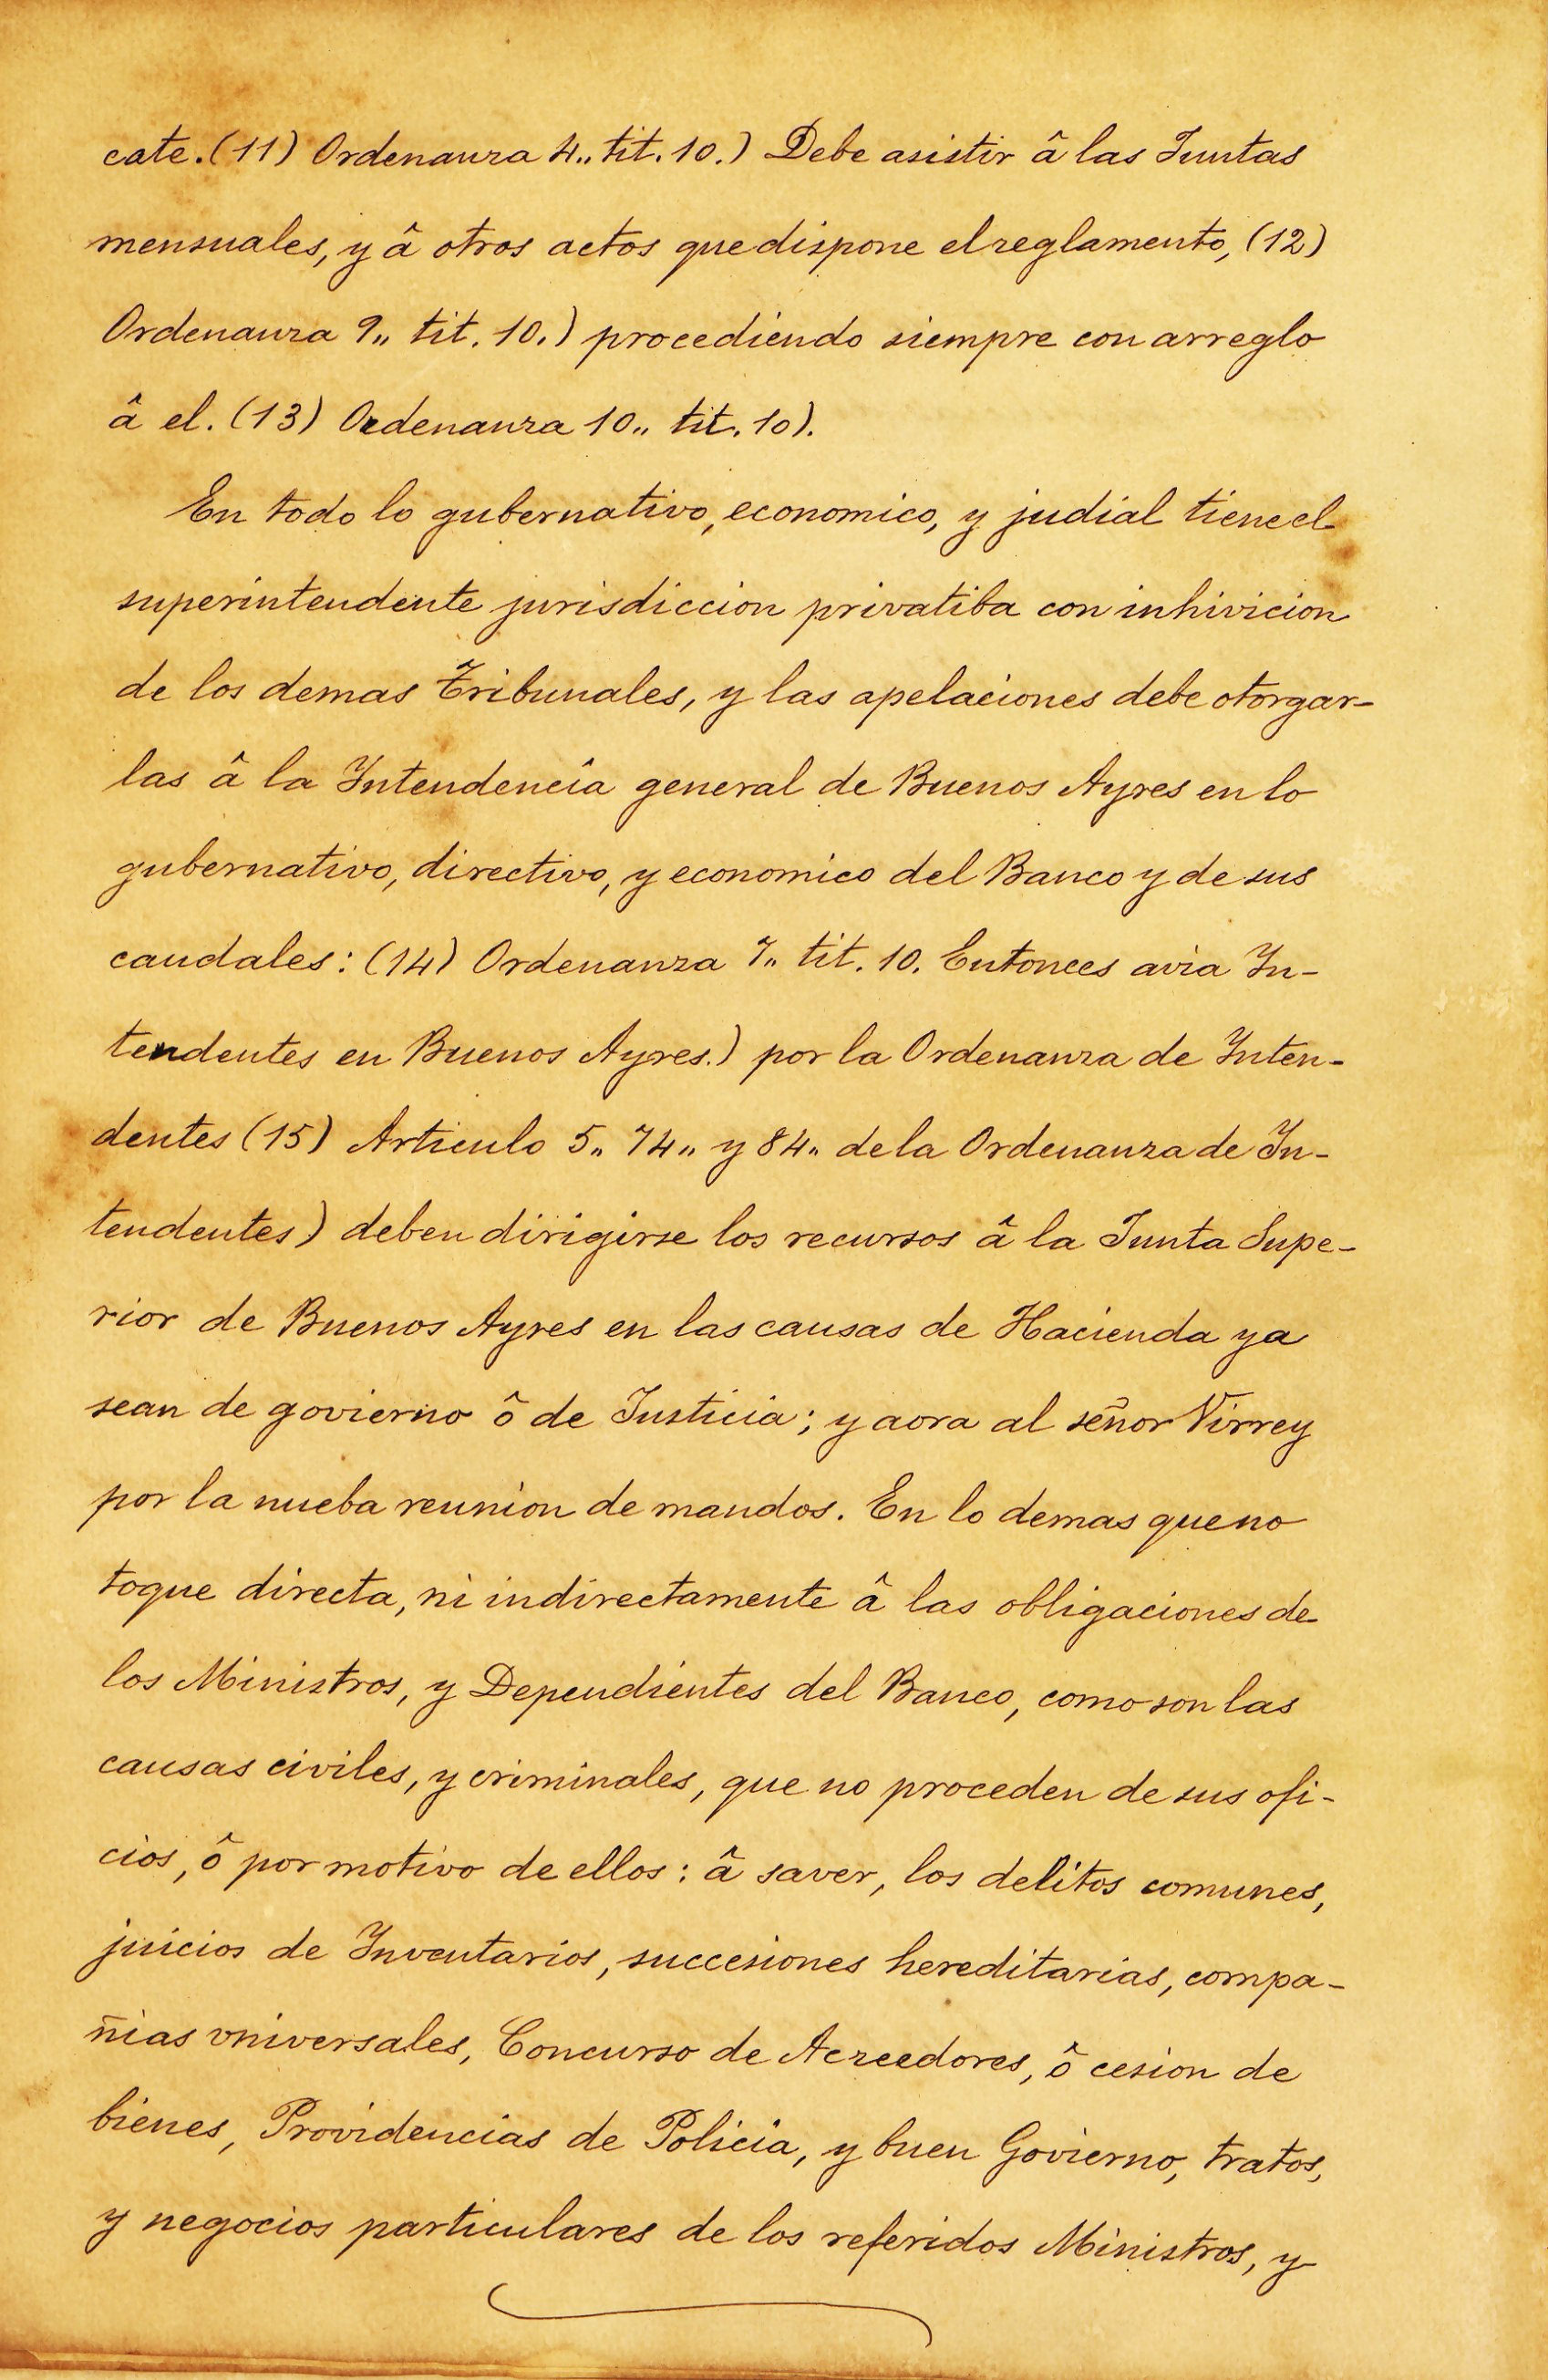 cate. (11) Ordenanza 4„ tit. 10.) Debe asistir â las Juntas
mensuales, y â otros actos que dispone el reglamento, (12)
Ordenanza 9„ tit. 10.) procediendo siempre con arreglo
â el. (13) Ordenanza 10„ tit. 10).
En todo lo gubernativo, economico, y judial tiene el
superintendente jurisdiccion privatiba con inhivicion
de los demas Tribunales, y las apelaciones debe otorgar-
las â la Intendencia general de Buenos Ayres en lo
gubernativo, directivo, y economico del Banco y de sus
caudales: (14) Ordenanza 7„ tit. 10. Entonces avia In-
tendentes en Buenos Ayres.) por la Ordenanza de Inten-
dentes (15) Articulo 5„ 74„ y 84„ de la Ordenanza de In-
tendentes) deben dirigirse los recursos â la Junta Supe-
rior de Buenos Ayres en las causas de Hacienda ya
sean de govierno ô de Justicia; y aora al señor Virrey
por la nueba reunion de mandos. En lo demas que no
toque directa, ni indirectamente â las obligaciones de
los Ministros, y Dependientes del Banco, como son las
causas civiles, y criminales, que no proceden de sus ofi-
cios, ô por motivo de ellos: â saver, los delitos comunes,
juicios de Inventarios, succesiones hereditarias, compa-
ñias vniversales, Concurso de Acreedores, ô cesion de
bienes, Providencias de Policia, y buen Govierno, tratos,
y negocios particulares de los referidos Ministros, y